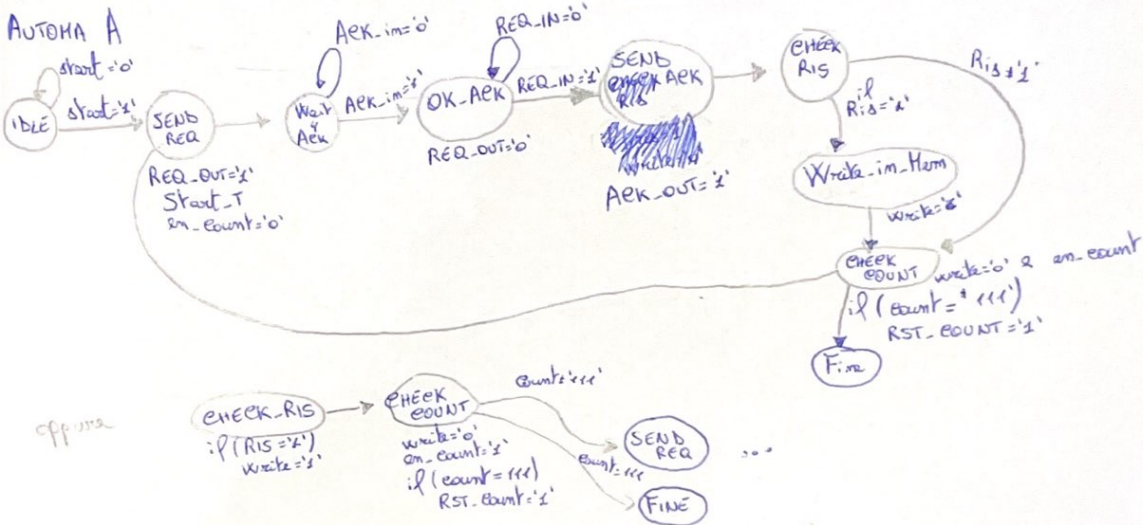 AUTOMA A
start='0'
start='1'
IDLE
SEND
REQ
REQ_OUT='1'
Start_T
en_count='0'
Ack_in='0'
Wait
Ack
Ack_in='1'
REQ_IN='0'
OK_ACK
REQ_OUT='0'
REQ_IN='1'
SEND
ACK
ACK_OUT='1'
CHECK
RIS
if
Ris='1'
Ris≠'1'
Write_in_Mem
CHECK
COUNT
write='0' & en_count
if (count='111')
RST_COUNT='1'
Fine
oppure
CHECK_RIS
if (RIS='1')
write='1'
CHECK
COUNT
write='0'
en_count='1'
if (count=111)
RST_count='1'
SEND
REQ
...
count=111
FINE